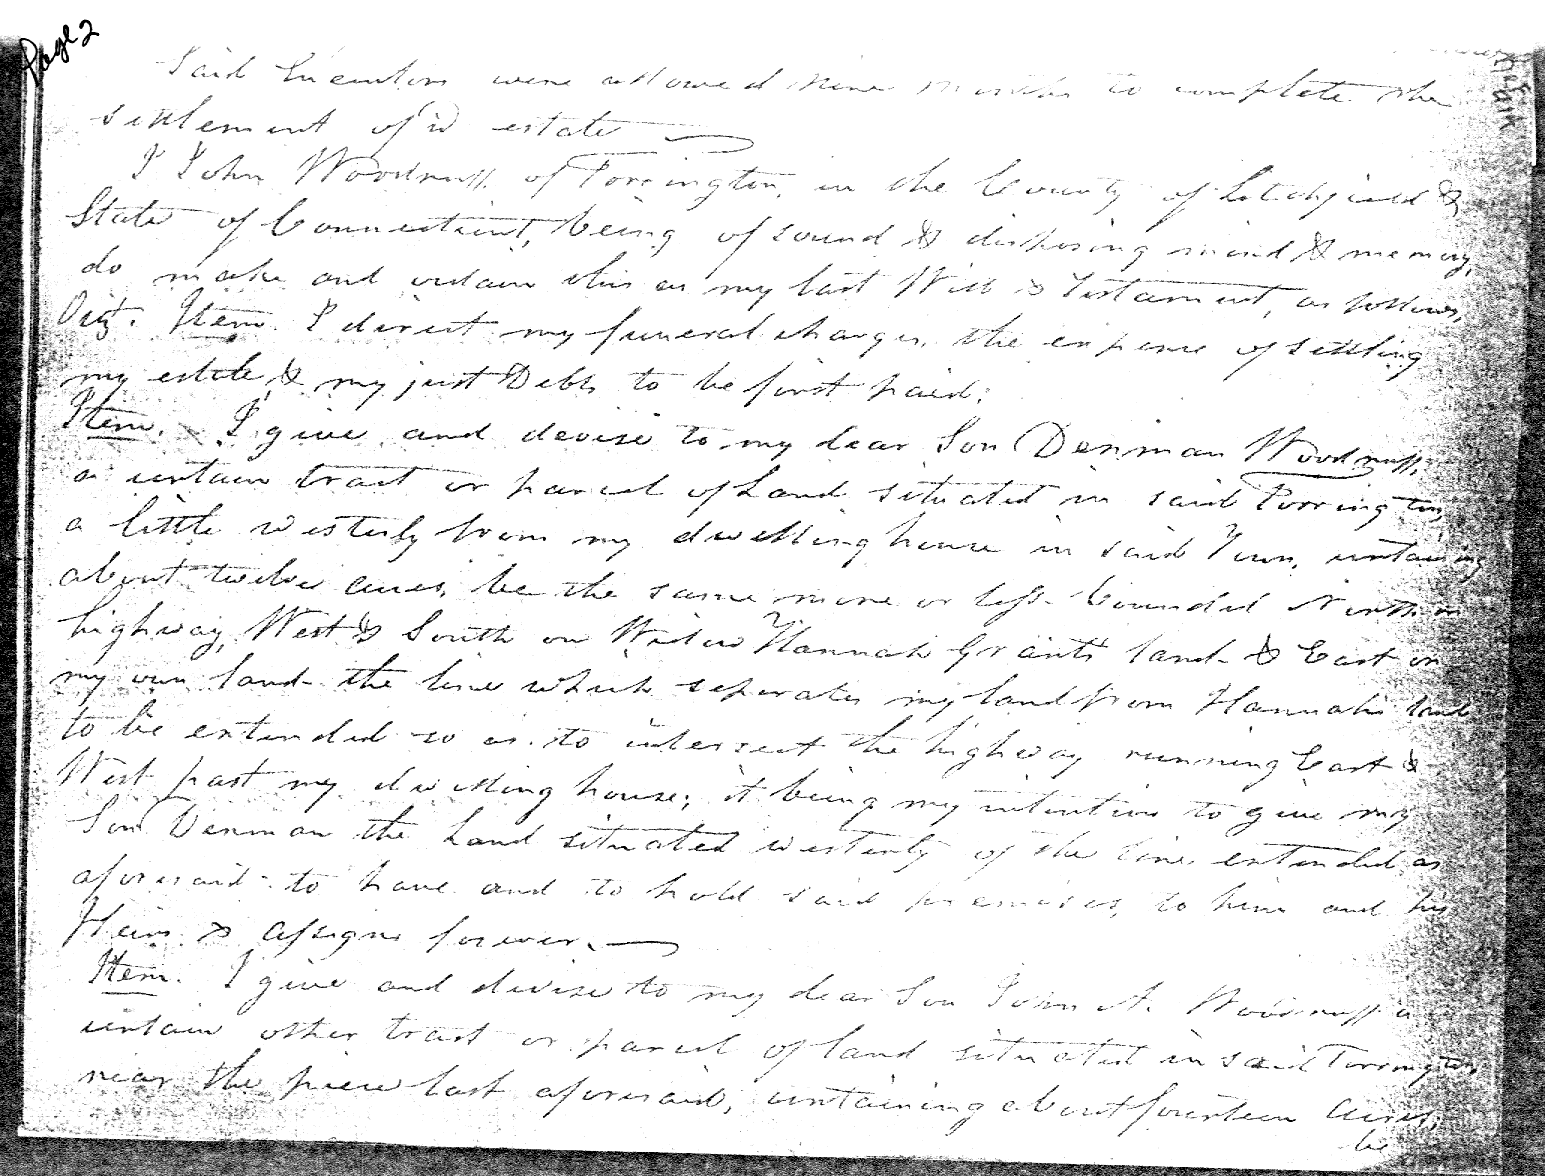 Page 2
Said Executors were allowed nine months to complete the
settlement of sd estate
I John Woodruff, of Torrington, in the County of Litchfield &
State of Connecticut, being of sound & disposing mind & memory,
do make and ordain this as my last Will & Testament, as follows,
Viz. Item. I direct my funeral charges, the expense of settling
my estate & my just Debts to be first paid;
Item. I give and devise to my dear Son Denman Woodruff,
a certain tract or parcel of Land situated in said Torrington,
a little westerly from my dwelling house in said Town, containing
about twelve acres, be the same more or less bounded North on
highway, West & South on Widow Hannah Grants land & East on
my own land the line which separates my land from Hannahs land
to be extended so as to intersect the highway running East &
West past my dwelling house; it being my intention to give my
Son Denman the Land situated westerly of the line extended as
aforesaid to have and to hold said premises, to him and his
Heirs & assigns forever.
Item. I give and devise to my dear Son John A. Woodruff a
certain other tract or parcel of land situated in said Torrington
near the piece last aforesaid, containing about fourteen acres,
be